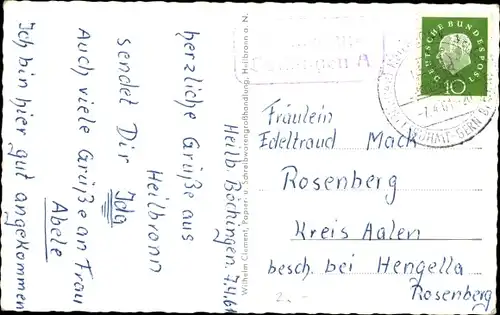 Heilb. Böckingen. 7.4.61
herzliche Grüße aus
Heilbronn
sendet Dir Ida
Auch viele Grüße an Frau
Abele
Ich bin hier gut angekommen
Wilhelm Clement, Papier- u. Schreibwarengroßhandlung, Heilbronn a. N.
DEUTSCHE BUNDESPOST
10
-7.4.61
Fräulein
Edeltraud Mack
Rosenberg
Kreis Aalen
besch. bei Hengella
Rosenberg